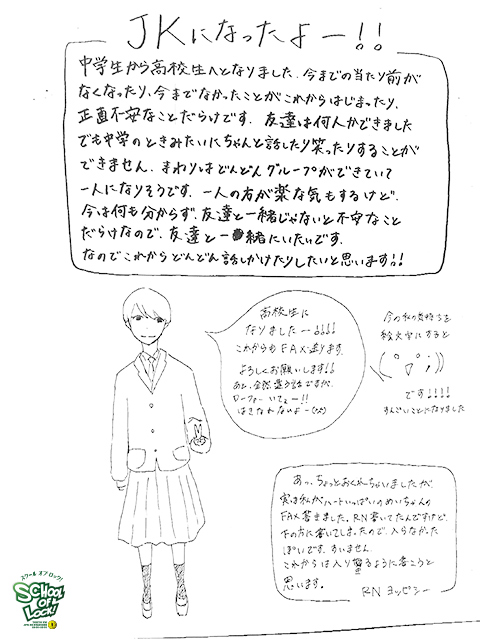 JKになったよー!!
中学生から高校生へとなりました、今までの当たり前が
なくなったり、今までなかったことがこれからはじまったり、
正直不安なことだらけです。友達は何人かできました
でも中学のときみたいにちゃんと話したり笑ったりすることが
できません、まわりはどんどんグループができていて
一人になりそうです、一人の方が楽な気もするけど、
今は何も分からず、友達と一緒じゃないと不安なこと
だらけなので、友達と一緒にいたいです、
なのでこれからどんどん話しかけたりしたいと思います!!
高校生に
なりましたー!!!!
これからもFAX送ります、
よろしくお願いします!!
あと、全然違う話ですが、
ローファーいてぇー!!
はきなれないよー
今の私の気持ちを
絵文字にすると
(( ° ▽ °;))
です!!!!
すんごいことになりました
あっ、ちょっとおくれちゃいましたが、
実は私がハートいっぱいのめいちゃんの
FAX書きました。RN書いてたんですけど、
下の方に書いてしまったので、入らなかった
ぽいです、すいません
これからは入るように書こうと
思います。
RN ヨッピー
スクール オブ ロック!
SCHOOL OF LOCK!